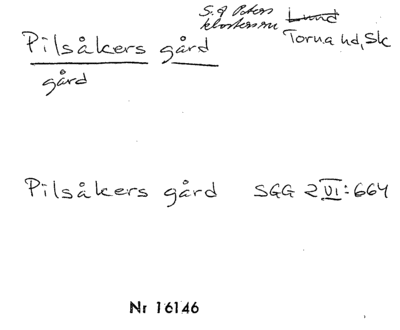 S. Peters
klosters sn ~~Lund~~
Pilsåkers gård Torna hd, Sk
gård
Pilsåkers gård SGG 2 VI:664
Nr 16146